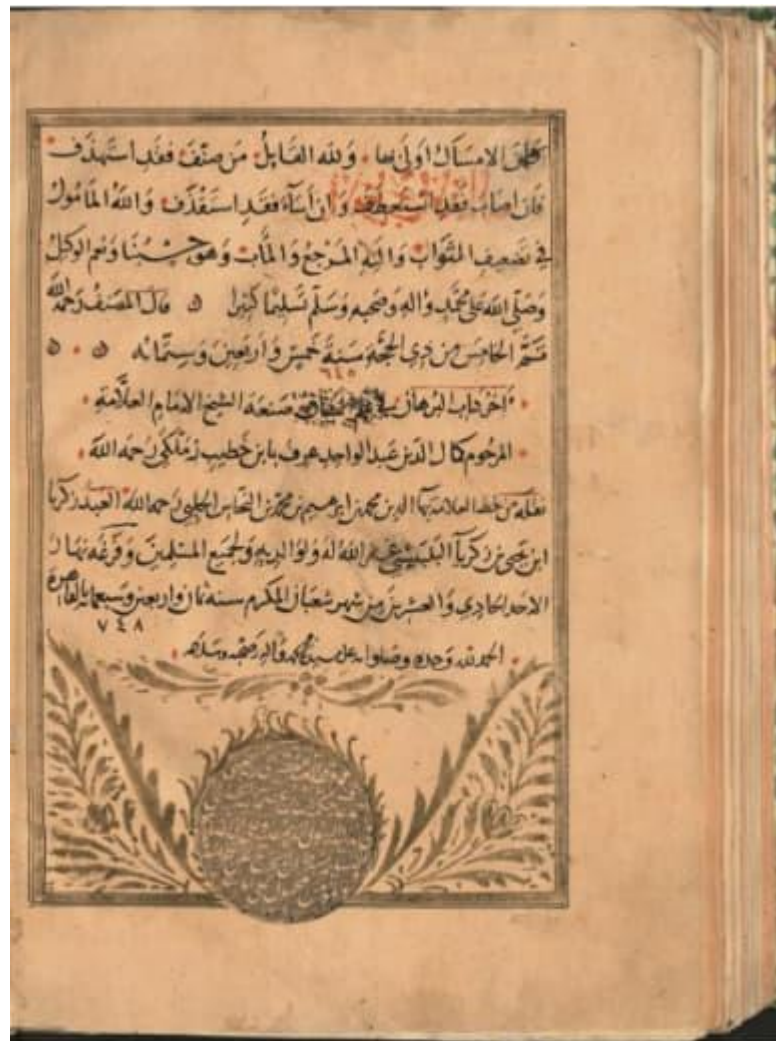 الامساك اولى بها ولله القايل من صنف فقد استهدف
فان اصاب فقد استعطف وان اساء فقد استقذف والله المامول
في تضعيف الثواب واليه المرجع والمآب وهو حسبنا ونعم الوكيل
وصلى الله على محمد واله وصحبه وسلم تسليما كثيرا قال المصنف رحمه الله
الخامس من ذي الحجة سنة خمس واربعين وستمائه
٦٤٥
اخر كتاب البرهان في صنعة الشيخ الامام العلامة
المرحوم كمال الدين عبد الواحد عرف بابن خطيب زملكى رحمه الله
نقله من خط العلامة بها الدين محمد بن ابرهيم بن محمد بن النحاس الحلبي رحمه الله العبد زكريا
ابن يحيى بن زكريا غفر الله له ولوالديه ولجميع المسلمين وفرغه نهار
الاحد الحادي والعشرين من شهر شعبان المكرم سنه ثمان واربعين وسبعمايه بالقاهرة
٧٤٨
الحمد لله وحده وصلواته على سيدنا محمد واله وصحبه وسلامه